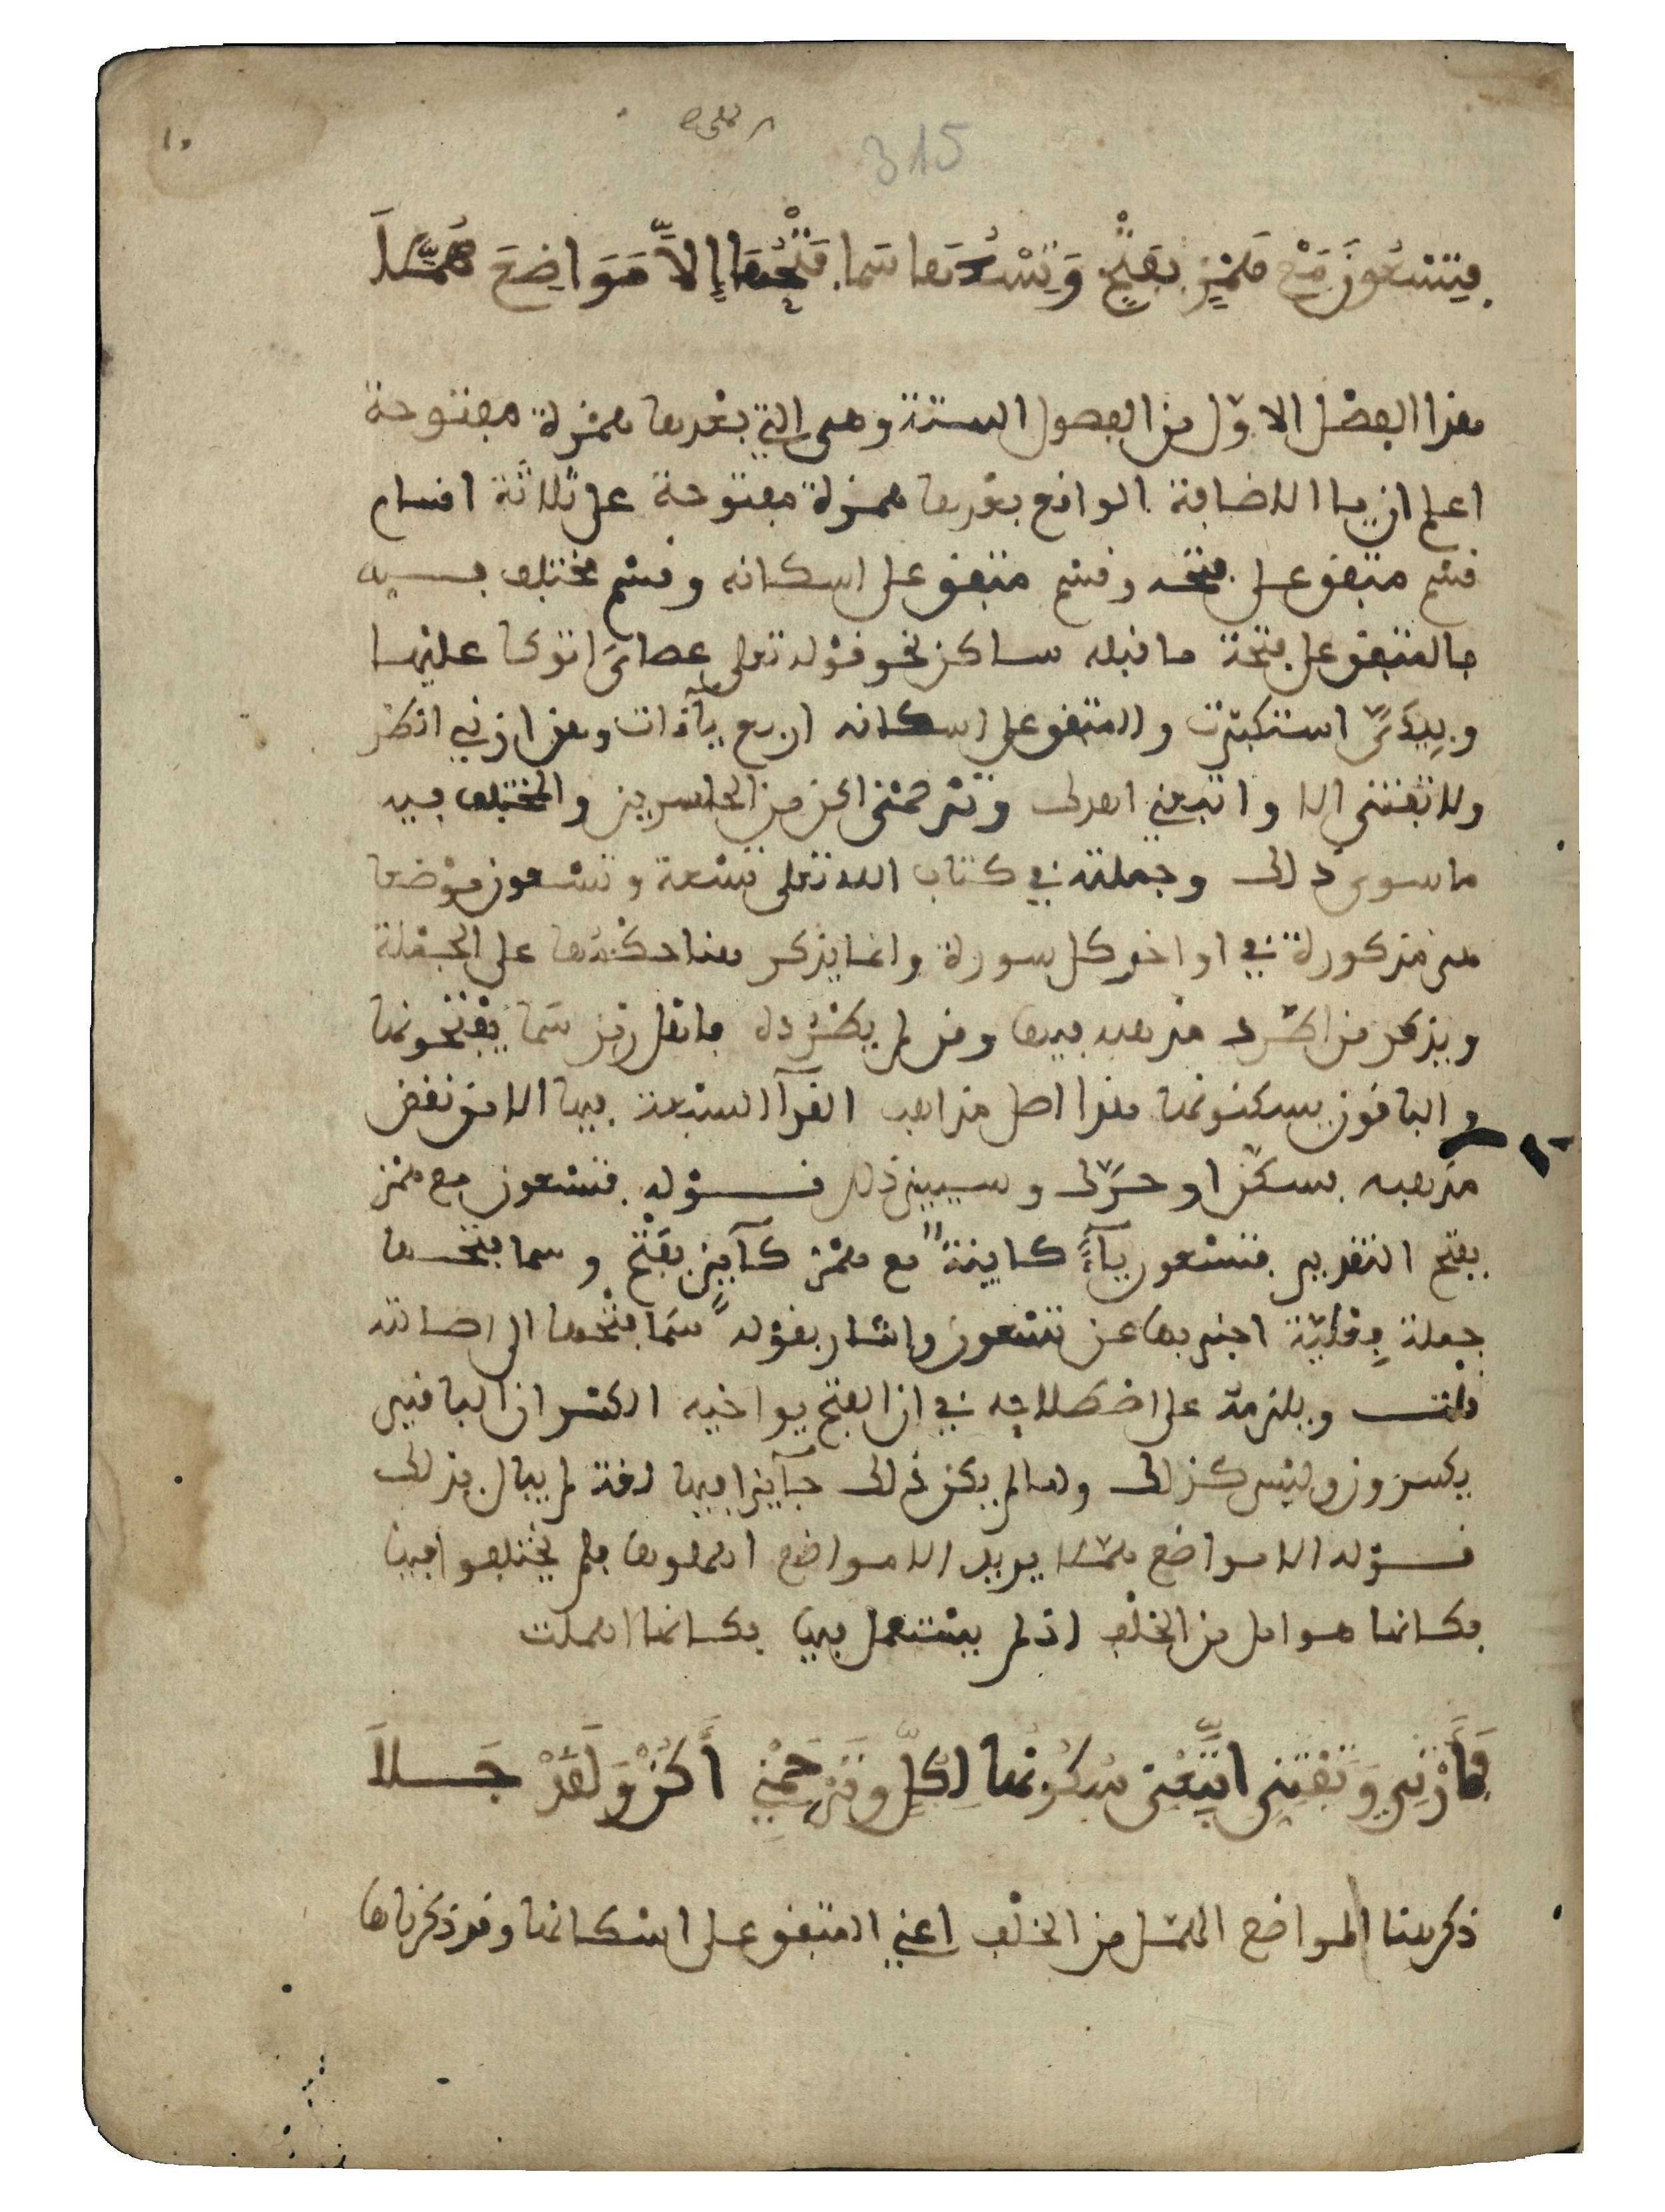 315
فَتِسْعُونَ مَعْ هَمْزٍ بِفَتْحٍ وَتِسْعُهَا سَمَا فَتْحُهَا إِلاَّ مَوَاضِعَ هُمَّلاَ
هذا الفصل الاوّل من الفصول الستة وهي التي بعدها همزة مفتوحة
اعلم ان يا الاضافة الواقع بعدها همزة مفتوحة على ثلاثة اقسام
قسم متفق على فتحه وقسم متفق على اسكانه وقسم مختلف فيه
فالمتفق على فتحة ما قبله ساكن نحو قوله تعلى عصاىَ اتوكا عليها
وبِيَدَىَّ استكبرت والمتفق على اسكانه اربع يآءات وهن ارني انظر
ولا تفتني الا واتبعني اهدك وترحمني اكن من الخاسرين والمختلف فيه
ما سوى ذلك وجملته في كتاب الله تعلى تسعة وتسعون موضعا
هي مذكورة في اواخر كل سورة وانما يذكر هنا حكمها على الجملة
ويذكر من اطّرد مذهبه فيها ومن لم يطرد له فاهل رمز سما يفتحونها
والباقون يسكنونها هذا اصل مذاهب القرآ السبعة فيها الا من نقض
مذهبه فسكّن او حرّك وسيبين ذلك قوله فتسعون مع همز
بفتح التقدير فتسعون يآءً كاينة مع همز كآين بفتح وسما فتحها
جملة فِعْليّة اخبر بها عن تسعون واشار بقوله سَمَا فتحها الى اصالته
قلت ويلزمه على اصطلاحه في ان الفتح يواخيه الكسر ان الباقين
يكسرون وليس كذلك ولما لم يكن ذلك جآيزا فيها لغة لم يبال بذلك
قوله الا مواضع هملا يريد الا مواضع اهملوها فلم يختلفوا فيها
فكانها هوامل من الخلف اذ لم يستعمل فيها فكانها اهملت
فَأَرْنِي وَتَفْتِنِّي اتَّبِعْنِي سُكُونُهَا لِكُلٍّ وَتَرْحَمْنِي أَكُنْ وَلَقَدْ جَلاَ
ذكر هنا المواضع الهمّل من الخلف اعني المتفق على اسكانها وقد ذكرناها